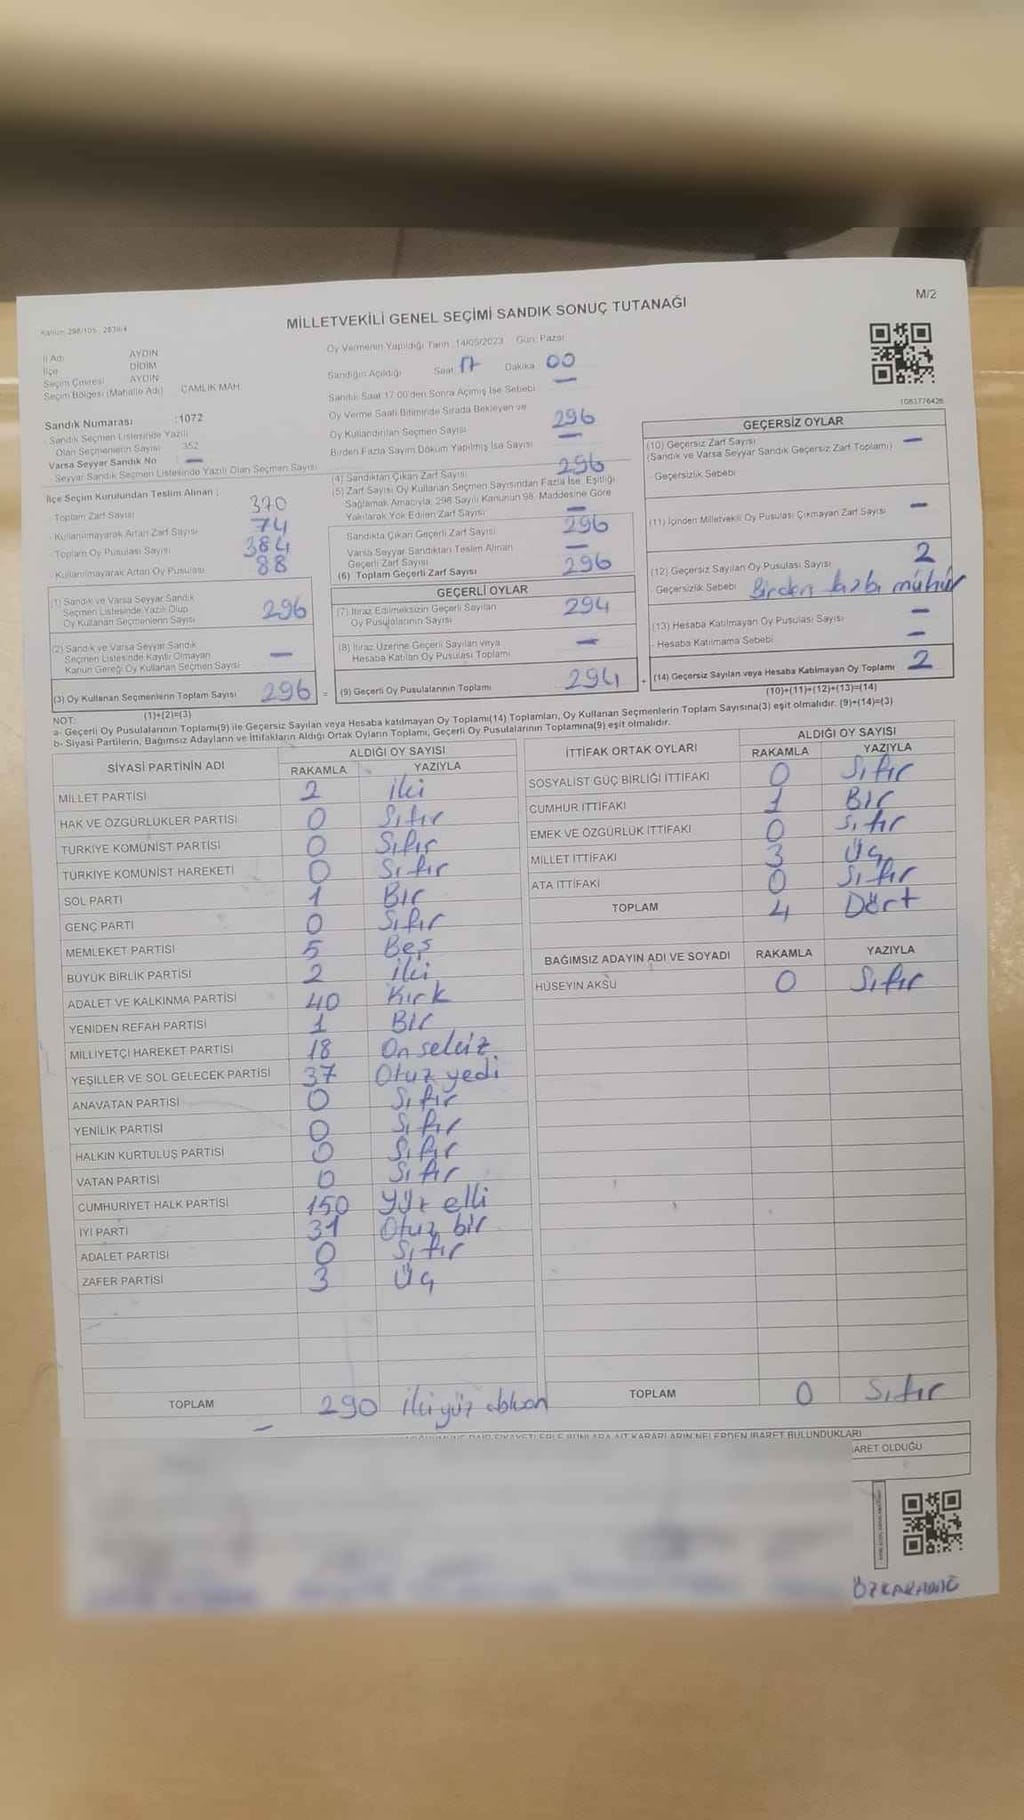 Kanun: 298/105, 2839/4
MİLLETVEKİLİ GENEL SEÇİMİ SANDIK SONUÇ TUTANAĞI
M/2
İl Adı AYDIN
İlçe DİDİM
Seçim Çevresi AYDIN
Seçim Bölgesi (Mahalle Adı) ÇAMLIK MAH.
Sandık Numarası :1072
- Sandık Seçmen Listesinde Yazılı
Olan Seçmenlerin Sayısı 352
Varsa Seyyar Sandık No —
- Seyyar Sandık Seçmen Listesinde Yazılı Olan Seçmen Sayısı
İlçe Seçim Kurulundan Teslim Alınan ;
- Toplam Zarf Sayısı 370
- Kullanılmayarak Artan Zarf Sayısı 74
- Toplam Oy Pusulası Sayısı 384
- Kullanılmayarak Artan Oy Pusulası 88
(1) Sandık ve Varsa Seyyar Sandık
Seçmen Listesinde Yazılı Olup
Oy Kullanan Seçmenlerin Sayısı 296
(2) Sandık ve Varsa Seyyar Sandık
Seçmen Listesinde Kayıtlı Olmayan
Kanun Gereği Oy Kullanan Seçmen Sayısı —
(3) Oy Kullanan Seçmenlerin Toplam Sayısı 296 =
(1)+(2)=(3)
Oy Vermenin Yapıldığı Tarih :14/05/2023 Gün: Pazar
Sandığın Açıldığı Saat 17 Dakika 00
Sandık Saat 17:00'den Sonra Açılmış İse Sebebi —
Oy Verme Saati Bitiminde Sırada Bekleyen ve
Oy Kullandırılan Seçmen Sayısı 296
Birden Fazla Sayım Döküm Yapılmış İsa Sayısı —
(4) Sandıktan Çıkan Zarf Sayısı 296
(5) Zarf Sayısı Oy Kullanan Seçmen Sayısından Fazla İse, Eşitliği
Sağlamak Amacıyla, 298 Sayılı Kanunun 98. Maddesine Göre
Yakılarak Yok Edilen Zarf Sayısı —
Sandıkta Çıkan Geçerli Zarf Sayısı 296
Varsa Seyyar Sandıktan Teslim Alınan
Geçerli Zarf Sayısı —
(6) Toplam Geçerli Zarf Sayısı 296
GEÇERLİ OYLAR
(7) İtiraz Edilmeksizin Geçerli Sayılan
Oy Pusulalarının Sayısı 294
(8) İtiraz Üzerine Geçerli Sayılan veya
Hesaba Katılan Oy Pusulası Toplamı —
(9) Geçerli Oy Pusulalarının Toplamı 294 +
1081776426
GEÇERSİZ OYLAR
(10) Geçersiz Zarf Sayısı
(Sandık ve Varsa Seyyar Sandık Geçersiz Zarf Toplamı) —
- Geçersizlik Sebebi
(11) İçinden Milletvekili Oy Pusulası Çıkmayan Zarf Sayısı —
(12) Geçersiz Sayılan Oy Pusulası Sayısı 2
- Geçersizlik Sebebi Birden fazla mühür
(13) Hesaba Katılmayan Oy Pusulası Sayısı —
- Hesaba Katılmama Sebebi —
(14) Geçersiz Sayılan veya Hesaba Katılmayan Oy Toplamı 2
(10)+(11)+(12)+(13)=(14)
NOT:
a- Geçerli Oy Pusulalarının Toplamı(9) ile Geçersiz Sayılan veya Hesaba katılmayan Oy Toplamı(14) Toplamları, Oy Kullanan Seçmenlerin Toplam Sayısına(3) eşit olmalıdır. (9)+(14)=(3)
b- Siyasi Partilerin, Bağımsız Adayların ve İttifakların Aldığı Ortak Oyların Toplamı, Geçerli Oy Pusulalarının Toplamına(9) eşit olmalıdır.
SİYASİ PARTİNİN ADI ALDIĞI OY SAYISI
RAKAMLA YAZIYLA
MİLLET PARTİSİ 2 iki
HAK VE ÖZGÜRLÜKLER PARTİSİ 0 Sıfır
TÜRKİYE KOMÜNİST PARTİSİ 0 Sıfır
TÜRKİYE KOMÜNİST HAREKETİ 0 Sıfır
SOL PARTİ 1 Bir
GENÇ PARTİ 0 Sıfır
MEMLEKET PARTİSİ 5 Beş
BÜYÜK BİRLİK PARTİSİ 2 iki
ADALET VE KALKINMA PARTİSİ 40 Kırk
YENİDEN REFAH PARTİSİ 1 Bir
MİLLİYETÇİ HAREKET PARTİSİ 18 On sekiz
YEŞİLLER VE SOL GELECEK PARTİSİ 37 Otuz yedi
ANAVATAN PARTİSİ 0 Sıfır
YENİLİK PARTİSİ 0 Sıfır
HALKIN KURTULUŞ PARTİSİ 0 Sıfır
VATAN PARTİSİ 0 Sıfır
CUMHURİYET HALK PARTİSİ 150 Yüz elli
İYİ PARTİ 31 Otuz bir
ADALET PARTİSİ 0 Sıfır
ZAFER PARTİSİ 3 Üç
TOPLAM 290 ikiyüz doksan
İTTİFAK ORTAK OYLARI ALDIĞI OY SAYISI
RAKAMLA YAZIYLA
SOSYALİST GÜÇ BİRLİĞİ İTTİFAKI 0 Sıfır
CUMHUR İTTİFAKI 1 Bir
EMEK VE ÖZGÜRLÜK İTTİFAKI 0 Sıfır
MİLLET İTTİFAKI 3 Üç
ATA İTTİFAKI 0 Sıfır
TOPLAM 4 Dört
BAĞIMSIZ ADAYIN ADI VE SOYADI RAKAMLA YAZIYLA
HÜSEYİN AKSU 0 Sıfır
TOPLAM 0 Sıfır
ŞİKAYETLERLE BUNLARA AİT KARARLARIN NELERDEN İBARET BULUNDUKLARI
ARET OLDUĞU